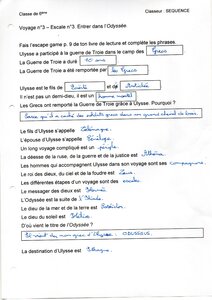 Classe de 6ème Classeur SEQUENCE
Voyage n°3 – Escale n°3. Entrer dans l'Odyssée.
Fais l'escape game p. 9 de ton livre de lecture et complète les phrases.
Ulysse a participé à la guerre de Troie dans le camp des Grecs
La Guerre de Troie a duré 10 ans
La Guerre de Troie a été remportée par les Grecs
Ulysse est le fils de et de Anticlée
Il n'est pas un demi-dieu, il est un homme mortel
Les Grecs ont remporté la Guerre de Troie grâce à Ulysse. Pourquoi ?
Parce qu'il a caché des soldats grecs dans un grand cheval de bois.
Le fils d'Ulysse s'appelle Télémaque.
L'épouse d'Ulysse s'appelle Pénélope.
Un long voyage compliqué est un périple.
La déesse de la ruse, de la guerre et de la justice est Athéna
Les hommes qui accompagnent Ulysse dans son voyage sont ses compagnons.
Le roi des dieux, du ciel et de la foudre est Zeus.
Les différentes étapes d'un voyage sont des escales
Le messager des dieux est Hermès
L'Odyssée est la suite de L'Iliade.
Le dieu de la mer et de la terre est Poséidon.
Le dieu du soleil est Hélios.
D'où vient le titre de l'Odyssée ?
Il vient du nom grec d'Ulysse : ODUSSEUS.
La destination d'Ulysse est Ithaque.